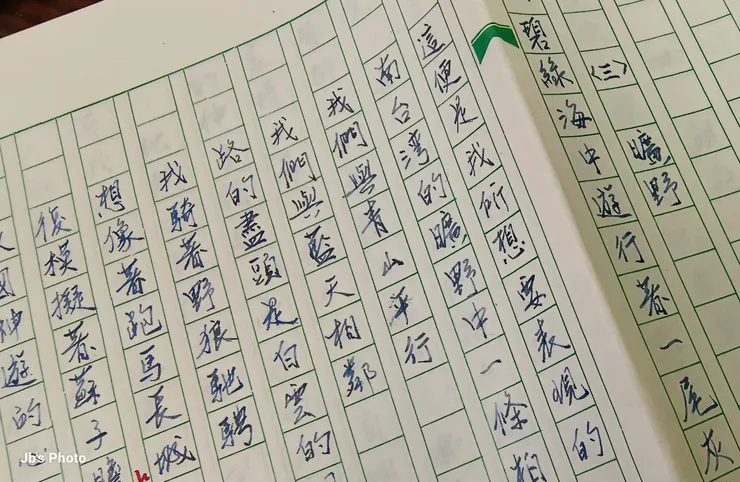 ㈢ 曠野
碧綠海中遊行著一尾灰
這便是我所想要表現的
南台灣的曠野中一條柏
我們與青山平行
我們與藍天相鄰
路的盡頭是白雲的
我騎著野狼馳騁
想像著跑馬長城
復模擬著蘇子
神遊的
Jb's Photo